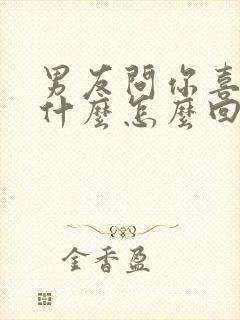 男友問你喜
什麼怎麼回
金香盈